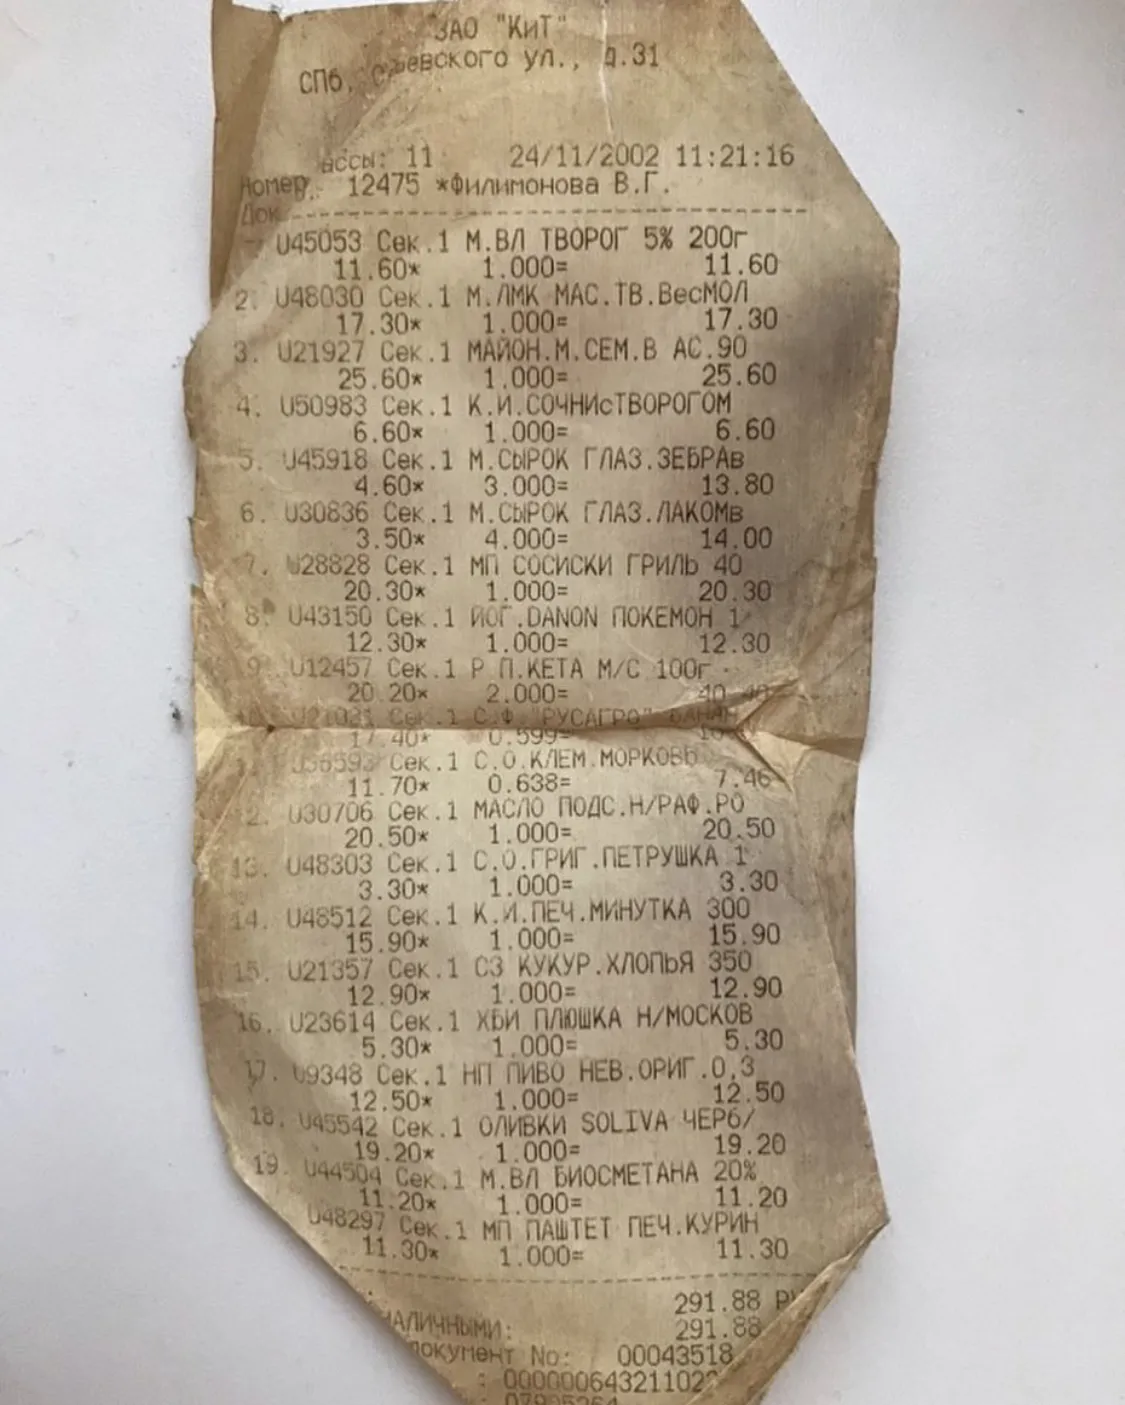 ЗАО "КиТ"
СПб, евского ул., д.31
ассы: 11 24/11/2002 11:21:16
Номер 12475 *Филимонова В.Г.
Док
U45053 Сек.1 М.ВЛ ТВОРОГ 5% 200г
11.60* 1.000= 11.60
2. U48030 Сек.1 М.ЛМК МАС.ТВ.ВесМОЛ
17.30* 1.000= 17.30
3. U21927 Сек.1 МАЙОН.М.СЕМ.В АС.90
25.60* 1.000= 25.60
4. U50983 Сек.1 К.И.СОЧНИсТВОРОГОМ
6.60* 1.000= 6.60
5. U45918 Сек.1 М.СЫРОК ГЛАЗ.ЗЕБРАв
4.60* 3.000= 13.80
6. U30836 Сек.1 М.СЫРОК ГЛАЗ.ЛАКОМв
3.50* 4.000= 14.00
7. U28828 Сек.1 МП СОСИСКИ ГРИЛЬ 40
20.30* 1.000= 20.30
8. U43150 Сек.1 ЙОГ.DANON ПОКЕМОН 1
12.30* 1.000= 12.30
9. U12457 Сек.1 Р П.КЕТА М/С 100г
20.20* 2.000= 40.40
10. U21031 Сек.1 С.Ф."РУСАГРО" БАНАН
17.40* 0.599=
Сек.1 С.О.КЛЕМ.МОРКОВЬ
11.70* 0.638= 7.46
12. U30706 Сек.1 МАСЛО ПОДС.Н/РАФ.РО
20.50* 1.000= 20.50
13. U48303 Сек.1 С.О.ГРИГ.ПЕТРУШКА 1
3.30* 1.000= 3.30
14. U48512 Сек.1 К.И.ПЕЧ.МИНУТКА 300
15.90* 1.000= 15.90
15. U21357 Сек.1 СЗ КУКУР.ХЛОПЬЯ 350
12.90* 1.000= 12.90
16. U23614 Сек.1 ХБИ ПЛЮШКА Н/МОСКОВ
5.30* 1.000= 5.30
17. U9348 Сек.1 НП ПИВО НЕВ.ОРИГ.0,3
12.50* 1.000= 12.50
18. U45542 Сек.1 ОЛИВКИ SOLIVA ЧЕРб/
19.20* 1.000= 19.20
19. U44504 Сек.1 М.ВЛ БИОСМЕТАНА 20%
11.20* 1.000= 11.20
U48297 Сек.1 МП ПАШТЕТ ПЕЧ.КУРИН
11.30* 1.000= 11.30
291.88
АЛИЧНЫМИ: 291.88
окумент No: 00043518